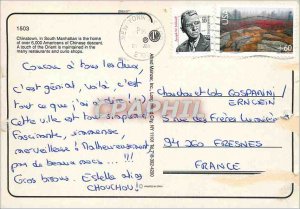 1503
Chinatown, in South Manhattan is the home
of over 6,000 Americans of Chinese descent.
A touch of the Orient is maintained in the
many restaurants and curio shops.
NEW YORK
USA
60
Coucou à tous les deux
C'est génial, voilà, c'est
tout ce que j'ai à dire
Cette ville est tout simplement
Fascinante, immense,
merveilleuse ! Malheureusement
pas de beaux mecs ...!!!
Gros bisous. Estelle
CHOUCHOU!
Chouchou et Lolo GASPARINI /
ERNWEIN
5 rue des Frères Lumière
94260 FRESNES
FRANCE
PRPhoto.com